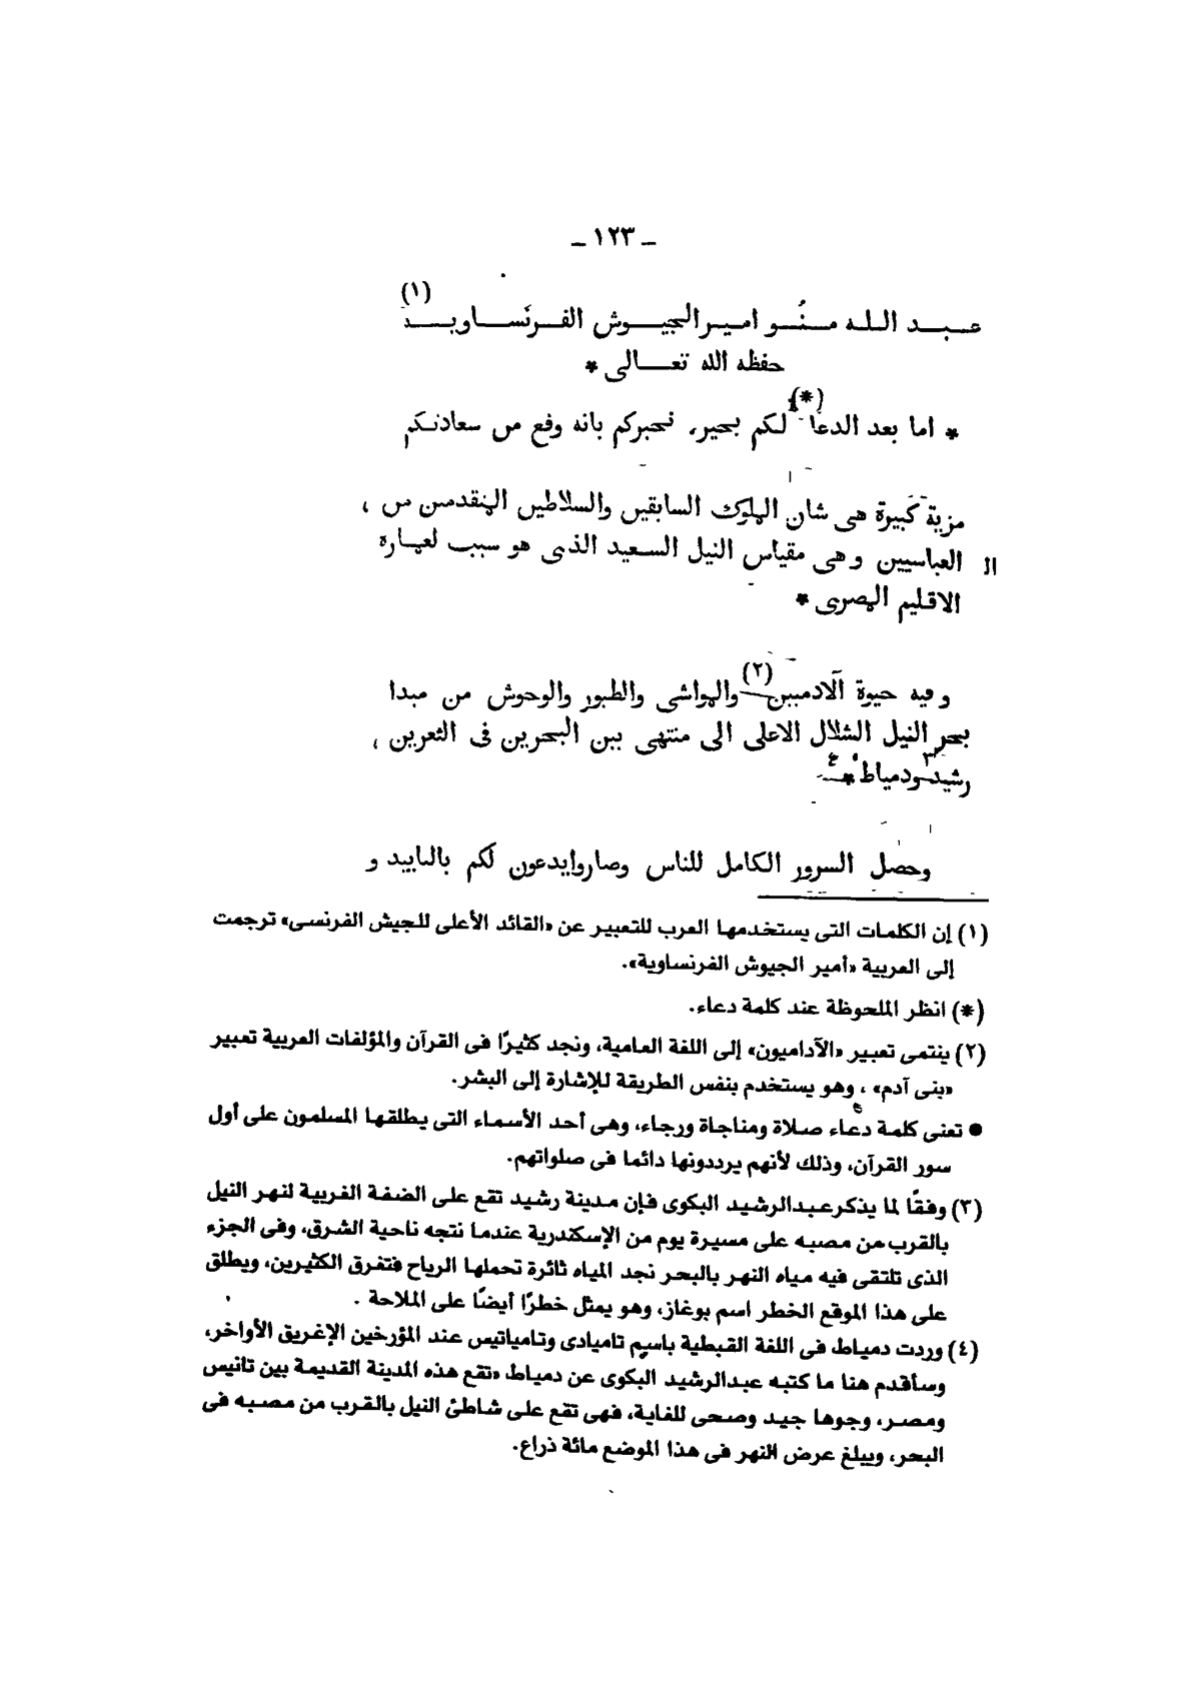 ـ ١٢٣ ـ
عبد الله منُو امير الجيوش الفرنساويه (١)
حفظه الله تعالى *
* اما بعد الدعا (*) لكم بخير، نخبركم بانه وقع من سعادتكم
مزية كبيرة هى شان الملوك السابقين والسلاطين المتقدمين من ،
ال العباسيين وهى مقياس النيل السعيد الذى هو سبب لعمارة
الاقليم المصرى *
وفيه حيوة الآدميين (٢) والمواشى والطيور والوحوش من مبدا
بحر النيل الشلال الاعلى الى منتهى بين البحرين فى الثغرين ،
رشيد ٣ ودمياط ٤ *
وحصل السرور الكامل للناس وصاروا يدعون لكم بالتاييد و
(١) إن الكلمات التى يستخدمها العرب للتعبير عن «القائد الأعلى للجيش الفرنسى» ترجمت
إلى العربية «أمير الجيوش الفرنساوية».
(*) انظر الملحوظة عند كلمة دعاء.
(٢) ينتمى تعبير «الآداميون» إلى اللغة العامية، ونجد كثيرًا فى القرآن والمؤلفات العربية تعبير
«بنى آدم» ، وهو يستخدم بنفس الطريقة للإشارة إلى البشر.
● تعنى كلمة دعاء صلاة ومناجاة ورجاء، وهى أحد الأسماء التى يطلقها المسلمون على أول
سور القرآن، وذلك لأنهم يرددونها دائما فى صلواتهم.
(٣) وفقًا لما يذكر عبدالرشيد البكوى فإن مدينة رشيد تقع على الضفة الغربية لنهر النيل
بالقرب من مصبه على مسيرة يوم من الإسكندرية عندما نتجه ناحية الشرق، وفى الجزء
الذى تلتقى فيه مياه النهر بالبحر نجد المياه ثائرة تحملها الرياح فتفرق الكثيرين، ويطلق
على هذا الموقع الخطر اسم بوغاز، وهو يمثل خطرًا أيضًا على الملاحة .
(٤) وردت دمياط فى اللغة القبطية باسم تاميادى وتامياتيس عند المؤرخين الإغريق الأواخر،
وسأقدم هنا ما كتبه عبدالرشيد البكوى عن دمياط «تقع هذه المدينة القديمة بين تانيس
ومصر، وجوها جيد وصحى للغاية، فهى تقع على شاطئ النيل بالقرب من مصبه فى
البحر، ويبلغ عرض النهر فى هذا الموضع مائة ذراع.